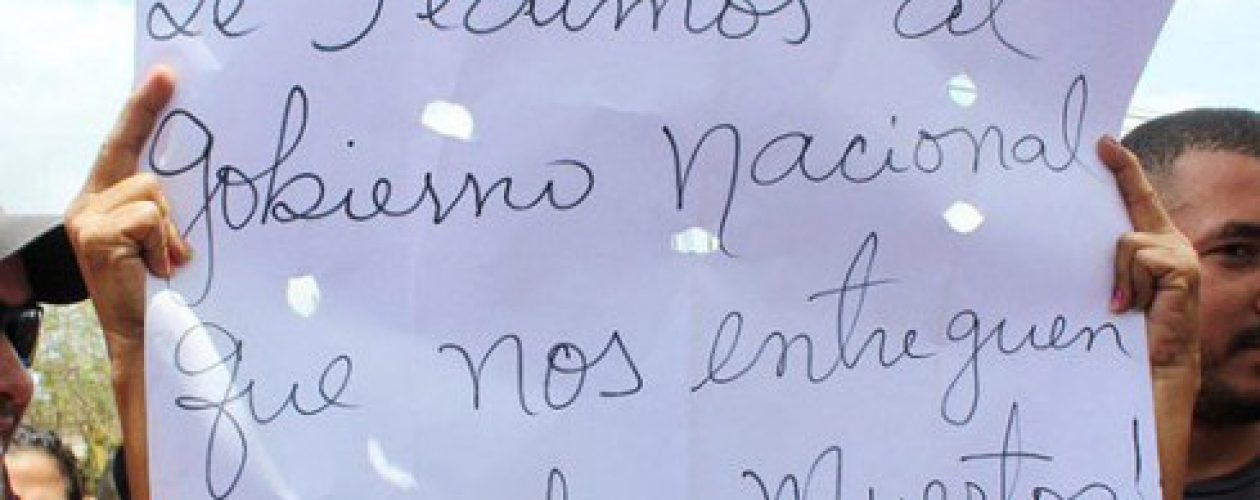 Le Pedimos al
Gobierno Nacional
que nos entreguen
Muertos!